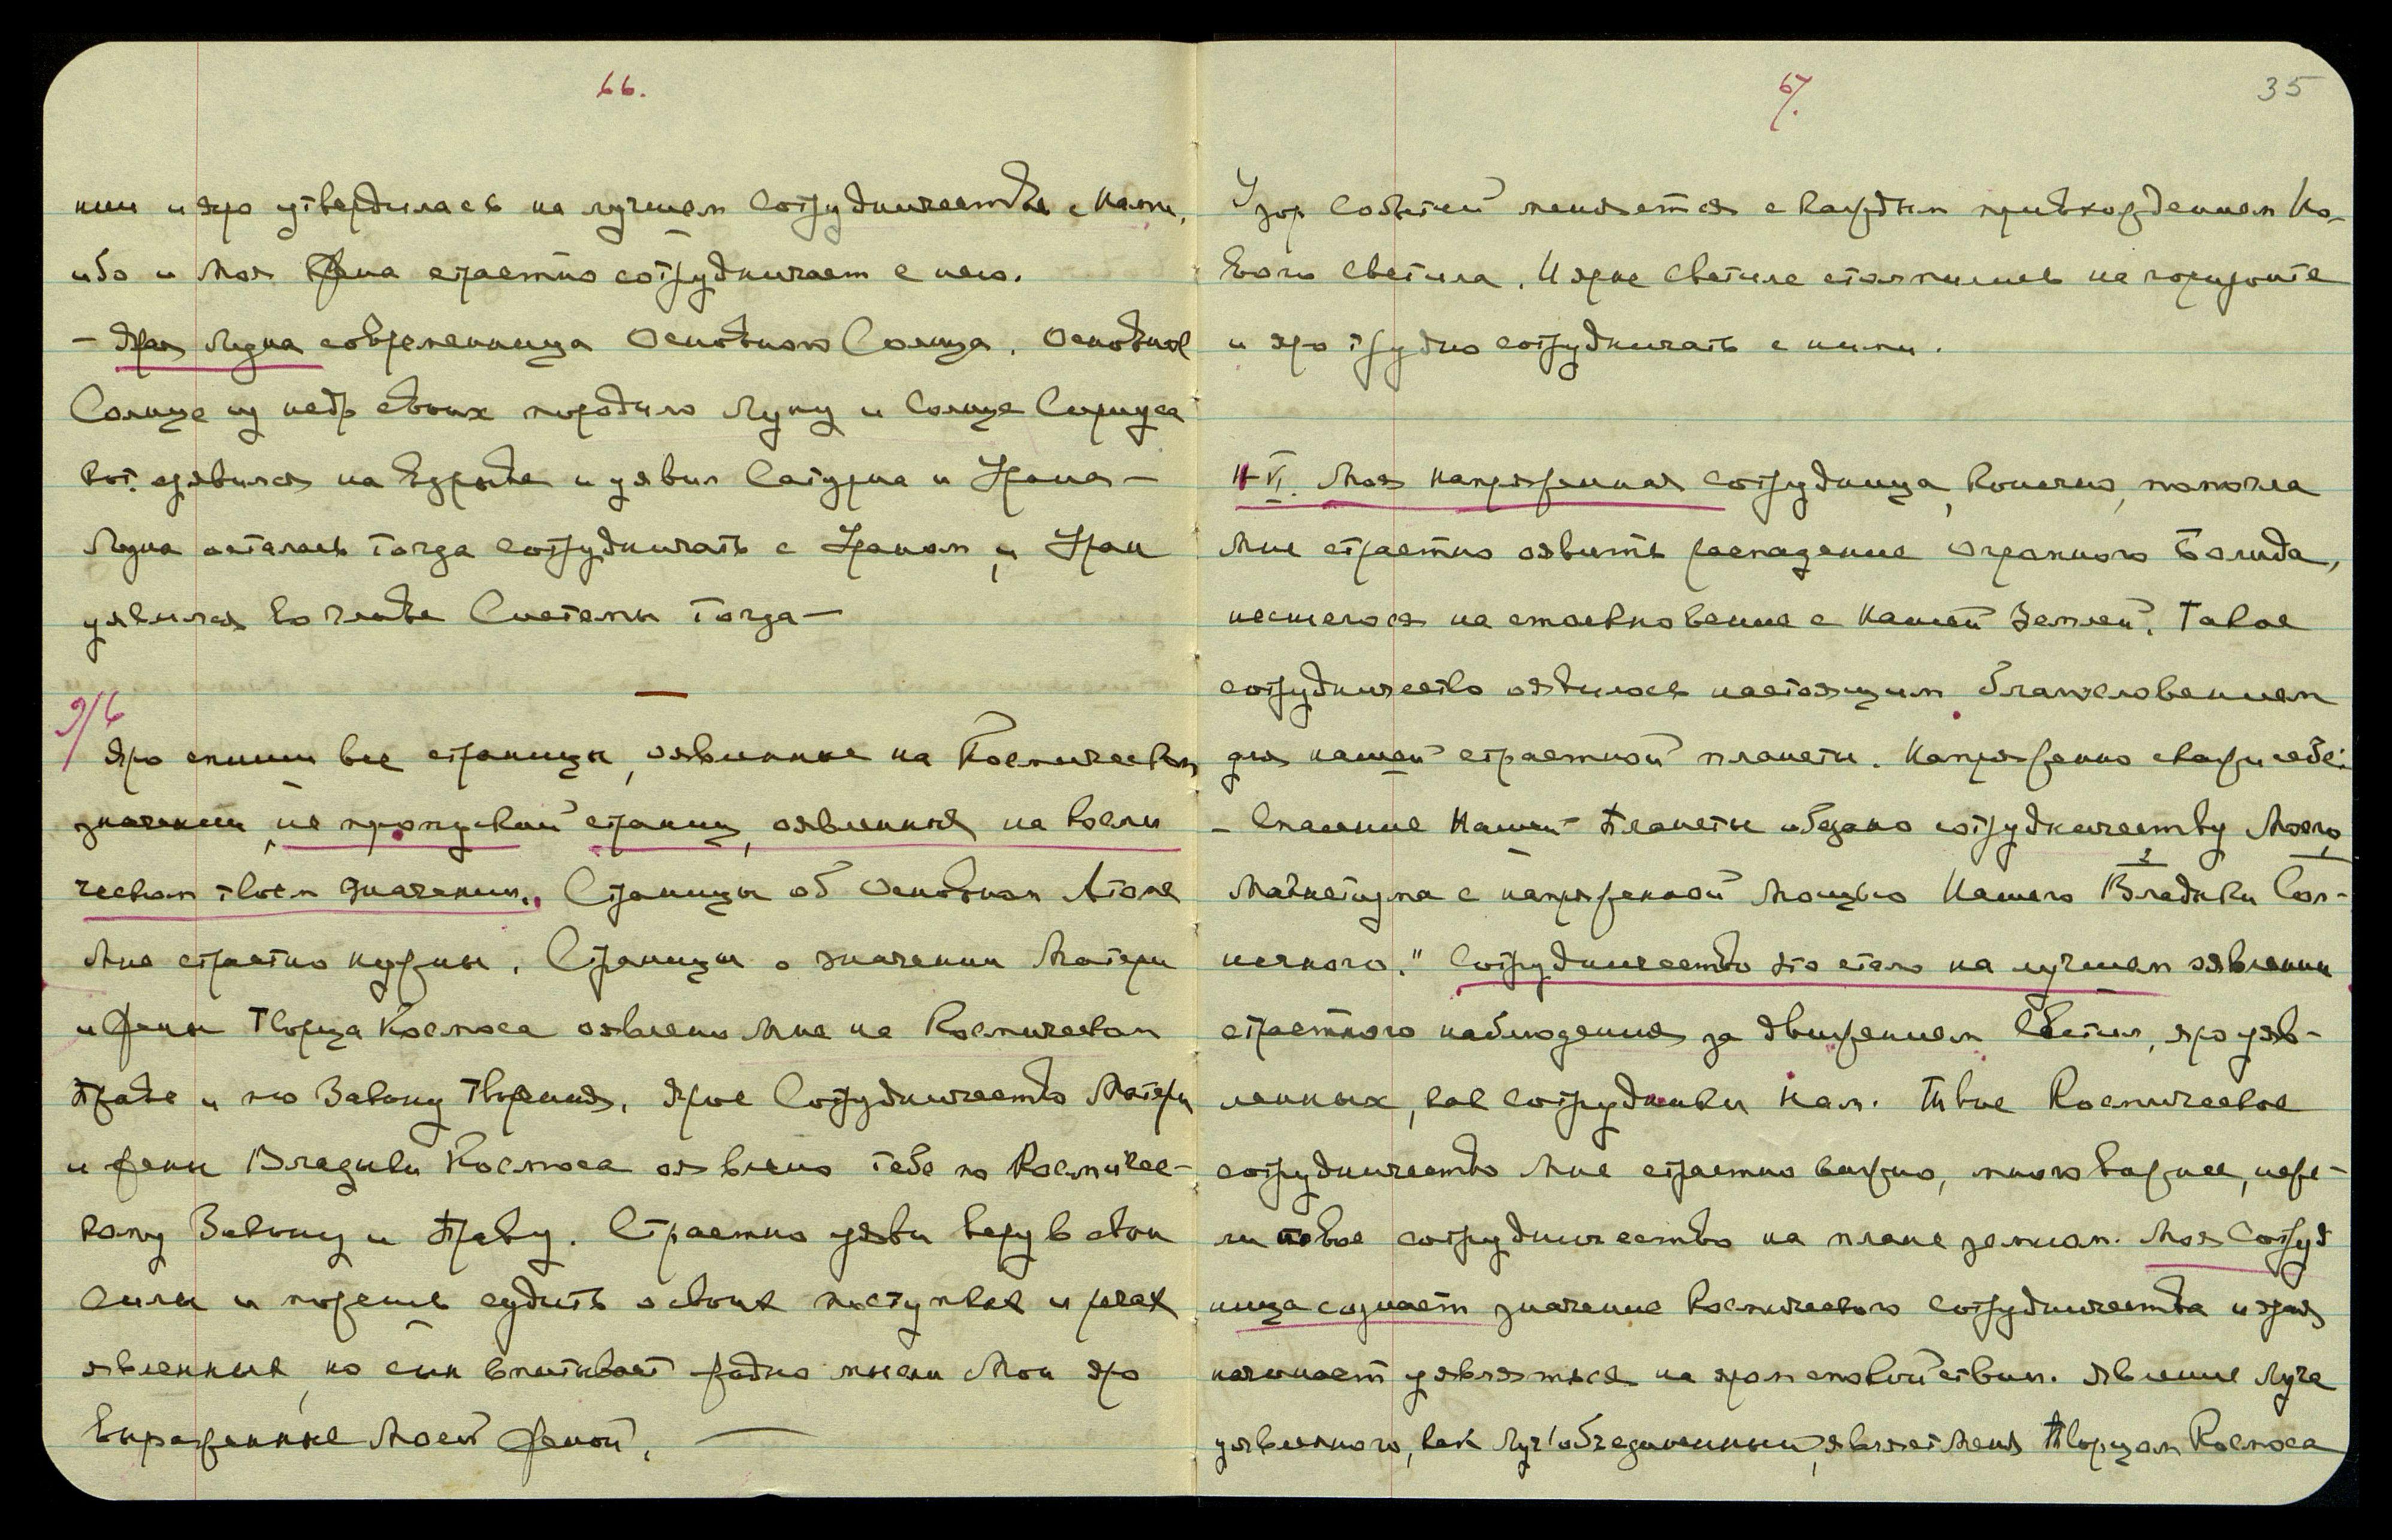 66.
нии и яро утвердилась на лучшем сотрудничестве с Нами,
ибо и Моя Жена страстно сотрудничает с нею.
— Ярая Луна современница Основного Солнца. Основное
Солнце из недр своих породило Луну и Солнце Сириуса
кот. оявился на взрыве и уявил Сатурна и Урана —
Луна осталась тогда сотрудничать с Ураном, и Уран
уявился во главе Системы тогда —
9/6
Яро спиши все страницы, оявленные на Космическом
значении, не пропускай страниц, оявленных на Косми
ческом твоем значении. Страницы об Основном Атоме
Мне страстно нужны. Страницы о значении Матери
и Жены Творца Космоса оявлены Мне на Космическом
Праве и по Закону Творения. Ярое Сотрудничество Матери
и Жены Владыки Космоса оявлено тебе по Космичес-
кому Закону и Праву. Страстно уяви веру в свои
силы и можешь судить о своих поступках и речах
явленных, но сын впитывает жадно мысли Мои яро
выраженные Моей Женой. —
67.
35
Узор событий меняется с каждым привхождением Но-
вого светила. И ярые светила столпились на горизонте
и яро трудно сотрудничать с ними.
11-VI. Моя напряженная сотрудница, конечно, помогла
Мне страстно оявить распадение огромного болида,
несшегося на столкновение с нашей Землей. Такое
сотрудничество оявилось настоящим благословением
для нашей страстной планеты. Напряженно скажи себе:
— Спасение Нашей Планеты обязано сотрудничеству Моего
Магнетизма с напряженной Мощью Нашего Владыки Сол-
нечного." Сотрудничество это стало на лучшем оявлении
страстного наблюдения за движением Светил, яро уяв-
ленных, как сотрудники Нам. Такое Космическое
сотрудничество Мне страстно важно, много важнее, неже-
ли такое сотрудничество на плане земном. Моя Сотруд
ница сознает значение космического сотрудничества и ярая
начинает уявляться на яром спокойствии. Явление Луча
уявленного, как Луч объединенный, являет Меня Творцом Космоса